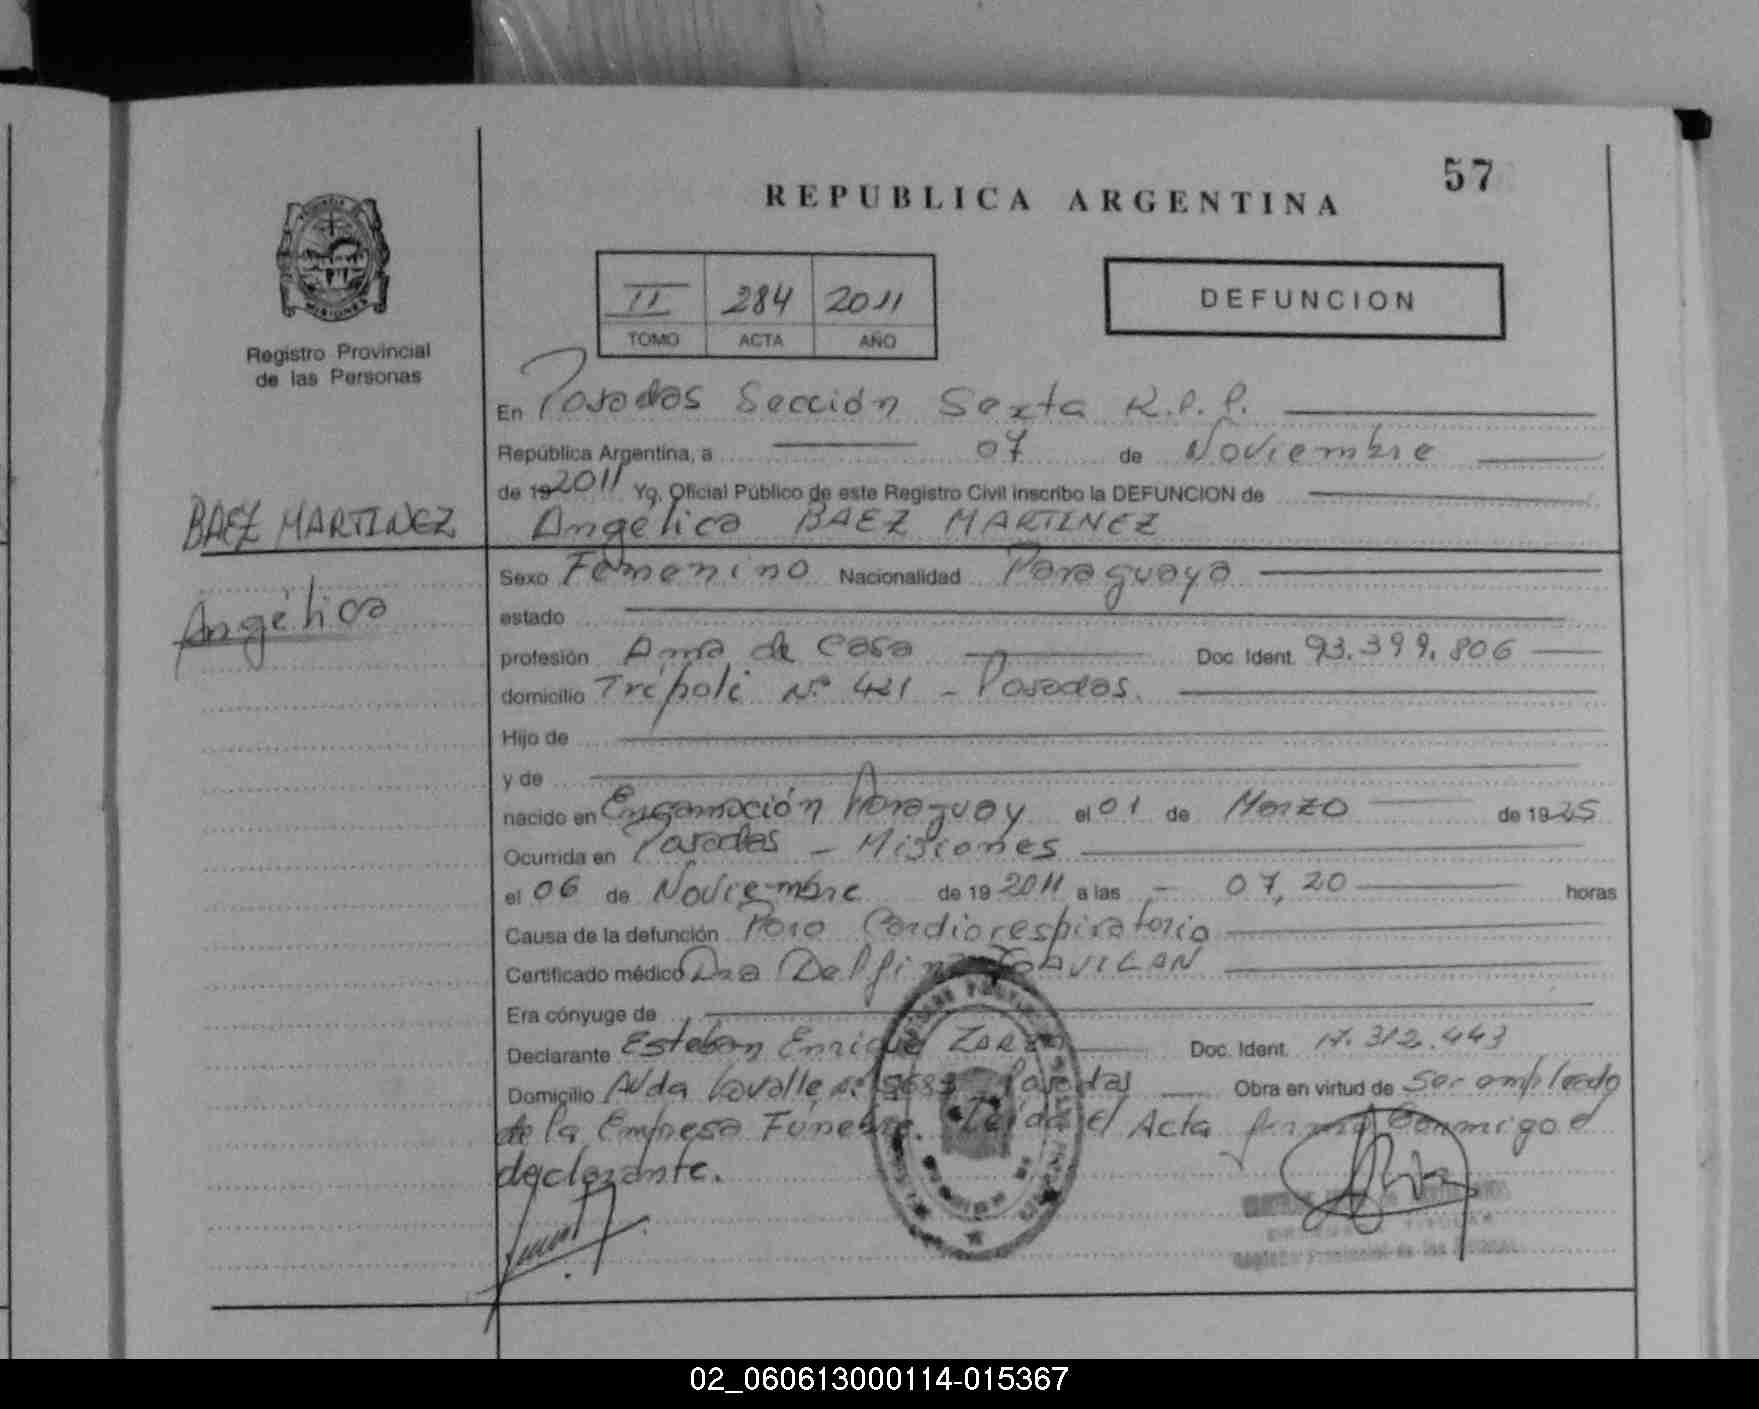 57
REPUBLICA ARGENTINA
MISIONES
Registro Provincial
de las Personas
II 284 2011
TOMO ACTA AÑO
DEFUNCION
En Posadas Sección Sexta R.P.P.
República Argentina, a 07 de Noviembre
de 19 2011 Yo, Oficial Público de este Registro Civil inscribo la DEFUNCION de
BAEZ MARTINEZ
Angélica BAEZ MARTINEZ
Angélica
Sexo Femenino Nacionalidad Paraguaya
estado
profesión Ama de casa Doc. Ident. 93.399.806
domicilio Trípoli Nº 421 - Posadas.
Hijo de
y de
nacido en Encarnación Paraguay el 01 de Marzo de 1925
Ocurrida en Posadas - Misiones
el 06 de Noviembre de 19 2011 a las - 07,20 horas
Causa de la defunción Paro Cardiorespiratorio
Certificado médico Dra Delfina GAVILAN
Era cónyuge de
Declarante Esteban Enrique ZARZA Doc. Ident. 17.312.443
Domicilio Avda Lavalle Nº Posadas Obra en virtud de Ser empleado
de la Empresa Fúnebre. Leída el Acta firma Conmigo el
declarante.
Registro Provincial de las Personas
02_060613000114-015367